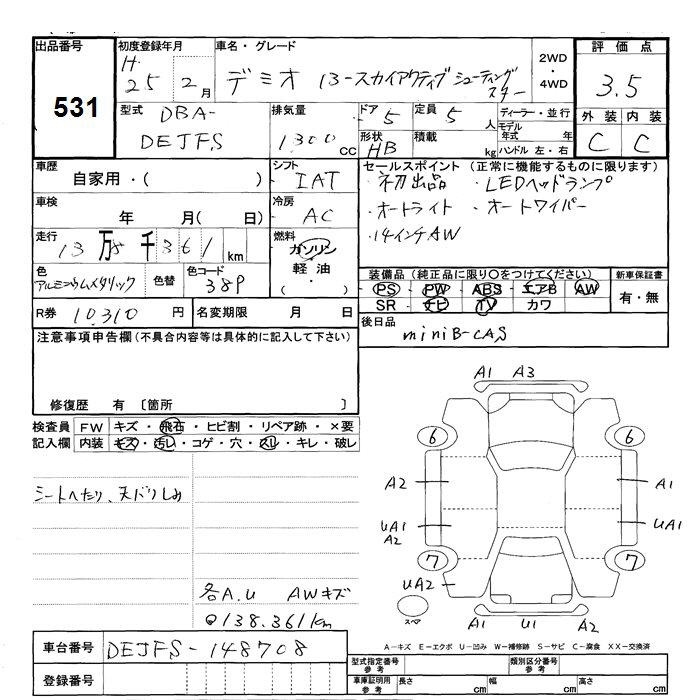 出品番号
531
初度登録年月
H 25 2月
車名・グレード
デミオ 13-スカイアクティブ シューティング
スター
2WD
・
4WD
評価点
3.5
外装 内装
C C
型式
DBA-
DEJFS
排気量
1300 cc
ドア 5
形状 HB
定員 5 人
積載 kg
ディーラー・並行
モデル年式 年
ハンドル 左・右
車歴
自家用・( )
シフト
IAT
セールスポイント (正常に機能するものに限ります)
・初出品 ・LEDヘッドランプ
・オートライト ・オートワイパー
・14インチAW
車検
年 月( 日)
冷房
AC
走行
13万8千361 km
燃料
ガソリン
軽油
( ・ )
色
アルミニウムメタリック
色替
色コード
38P
装備品 (純正品に限り○をつけてください)
PS PW ABS エアB AW
SR ナビ TV カワ
新車保証書
有・無
R券 10,310 円
名変期限 月 日
後日品
miniB-CAS
注意事項申告欄(不具合内容等は具体的に記入して下さい)
修復歴 有 〔箇所 〕
検査員記入欄
FW キズ・飛石・ヒビ割・リペア跡・×要
内装 キズ・汚レ・コゲ・穴・スレ・キレ・破レ
シートへたり、天バリしみ
各A.U AWキズ
138.361km
A1 A3
6 6
A2 A1
UA1 UA1
A2
7 7
UA2
スペア
A1 U1 A2
A-キズ E-エクボ U-凹み W-補修跡 S-サビ C-腐食 XX-交換済
車台番号 DEJFS-148708
登録番号
型式指定番号 参考
類別区分番号 参考
車庫証明用 参考
長さ cm 幅 cm 高さ cm